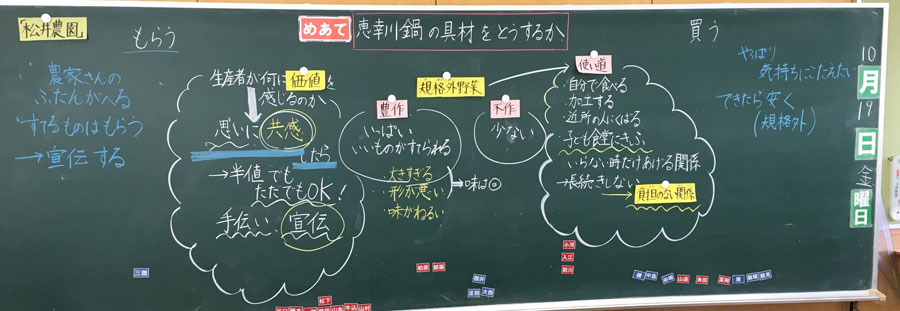 「松井農園」
もらう
めあて 恵幸川鍋の具材をどうするか
買う
農家さんの
ふたんがへる
すてるものはもらう
→宣伝する
生産者が何に価値を
感じるのか
思いに共感
したら
→半値でも
ただでもOK!
手伝い 宣伝
規格外野菜
豊作
いっぱい
いいものがすてられる
大きすぎる
形が悪い
味かわるい
→味は◎
不作
少ない
使い道
・自分で食べる
・加工する
・近所の人にくばる
・子ども食堂にきふ
いらない時だけあげる関係
→長続きしない
→負担のない関係
やっぱり
気持ちにこたえたい
できたら安く
(規格外)
10
月
19
日
金
曜日
三園
松下
松原
小河
入江
中島